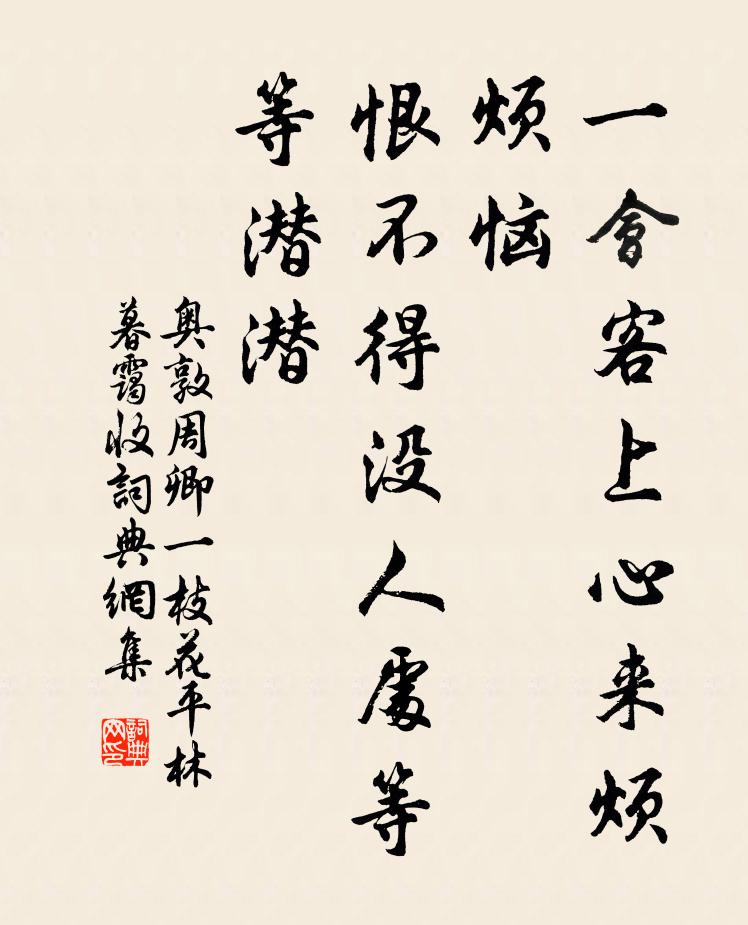 一會客上心来烦
烦恼
恨不得没人處等
等潜潜
奥敦周卿一枝花平林
暮靄收詞典網集
詞典網印